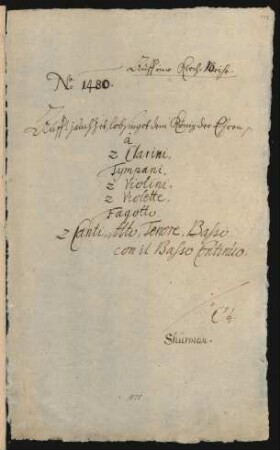 Auff eine Kirch-Weihe.
No. 1480.
Rufft, jauchzet, lobsinget dem König der Ehren,
à
2 Clarini.
Tympani.
2 Violini.
2 Violette.
Fagotto.
2 Canti. Alto. Tenore. Basso
con il Basso Continuo.
Shürman.